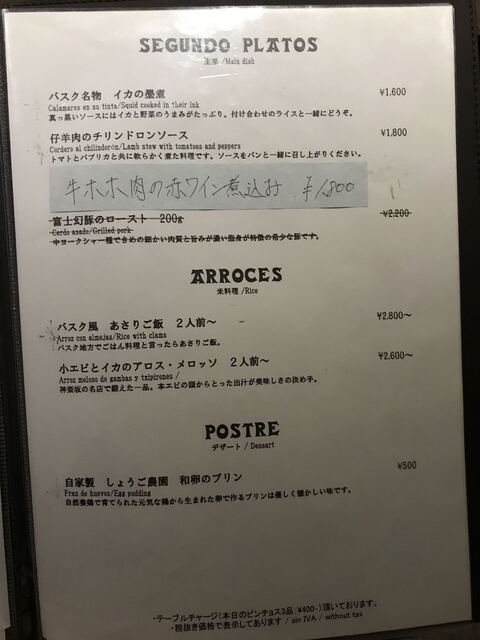 SEGUNDO PLATOS
主菜 /Main dish
バスク名物　イカの墨煮 ¥1,600
Calamares en su tinta/Squid cooked in their ink
真っ黒いソースにはイカと野菜のうまみがたっぷり。付け合わせのライスと一緒にどうぞ。
仔羊肉のチリンドロンソース ¥1,800
Cordero al chilinderón/Lamb stew with tomatoes and peppers
トマトとパプリカと共に軟らかく煮た料理です。ソースをパンと一緒に召し上がりください。
牛ホホ肉の赤ワイン煮込み ¥1,800
富士幻豚のロースト　200g ¥2,200
Cerdo asado/Grilled pork
中ヨークシャー種できめの細かい肉質と旨みが濃い脂身が特徴の希少な豚です。
ARROCES
米料理 /Rice
バスク風　あさりご飯　２人前～ ¥2,800～
Arroz con almejas/Rice with clams
バスク地方でごはん料理と言ったらあさりご飯。
小エビとイカのアロス・メロッソ　２人前～ ¥2,600～
Arroz meloso de gambas y txipirones /
神楽坂の名店で鍛えた一品。本エビの頭からとった出汁が美味しさの決め手。
POSTRE
デザート / Dessart
自家製　しょうご農園　和卵のプリン ¥500
Fran de huevos/Egg pudding
自然養鶏で育てられた元気な鶏から生まれた卵で作るプリンは優しく懐かしい味です。
・テーブルチャージ(本日のピンチョス3品：¥400-)頂いております。
・税抜き価格で表示してあります / sin IVA / without tax